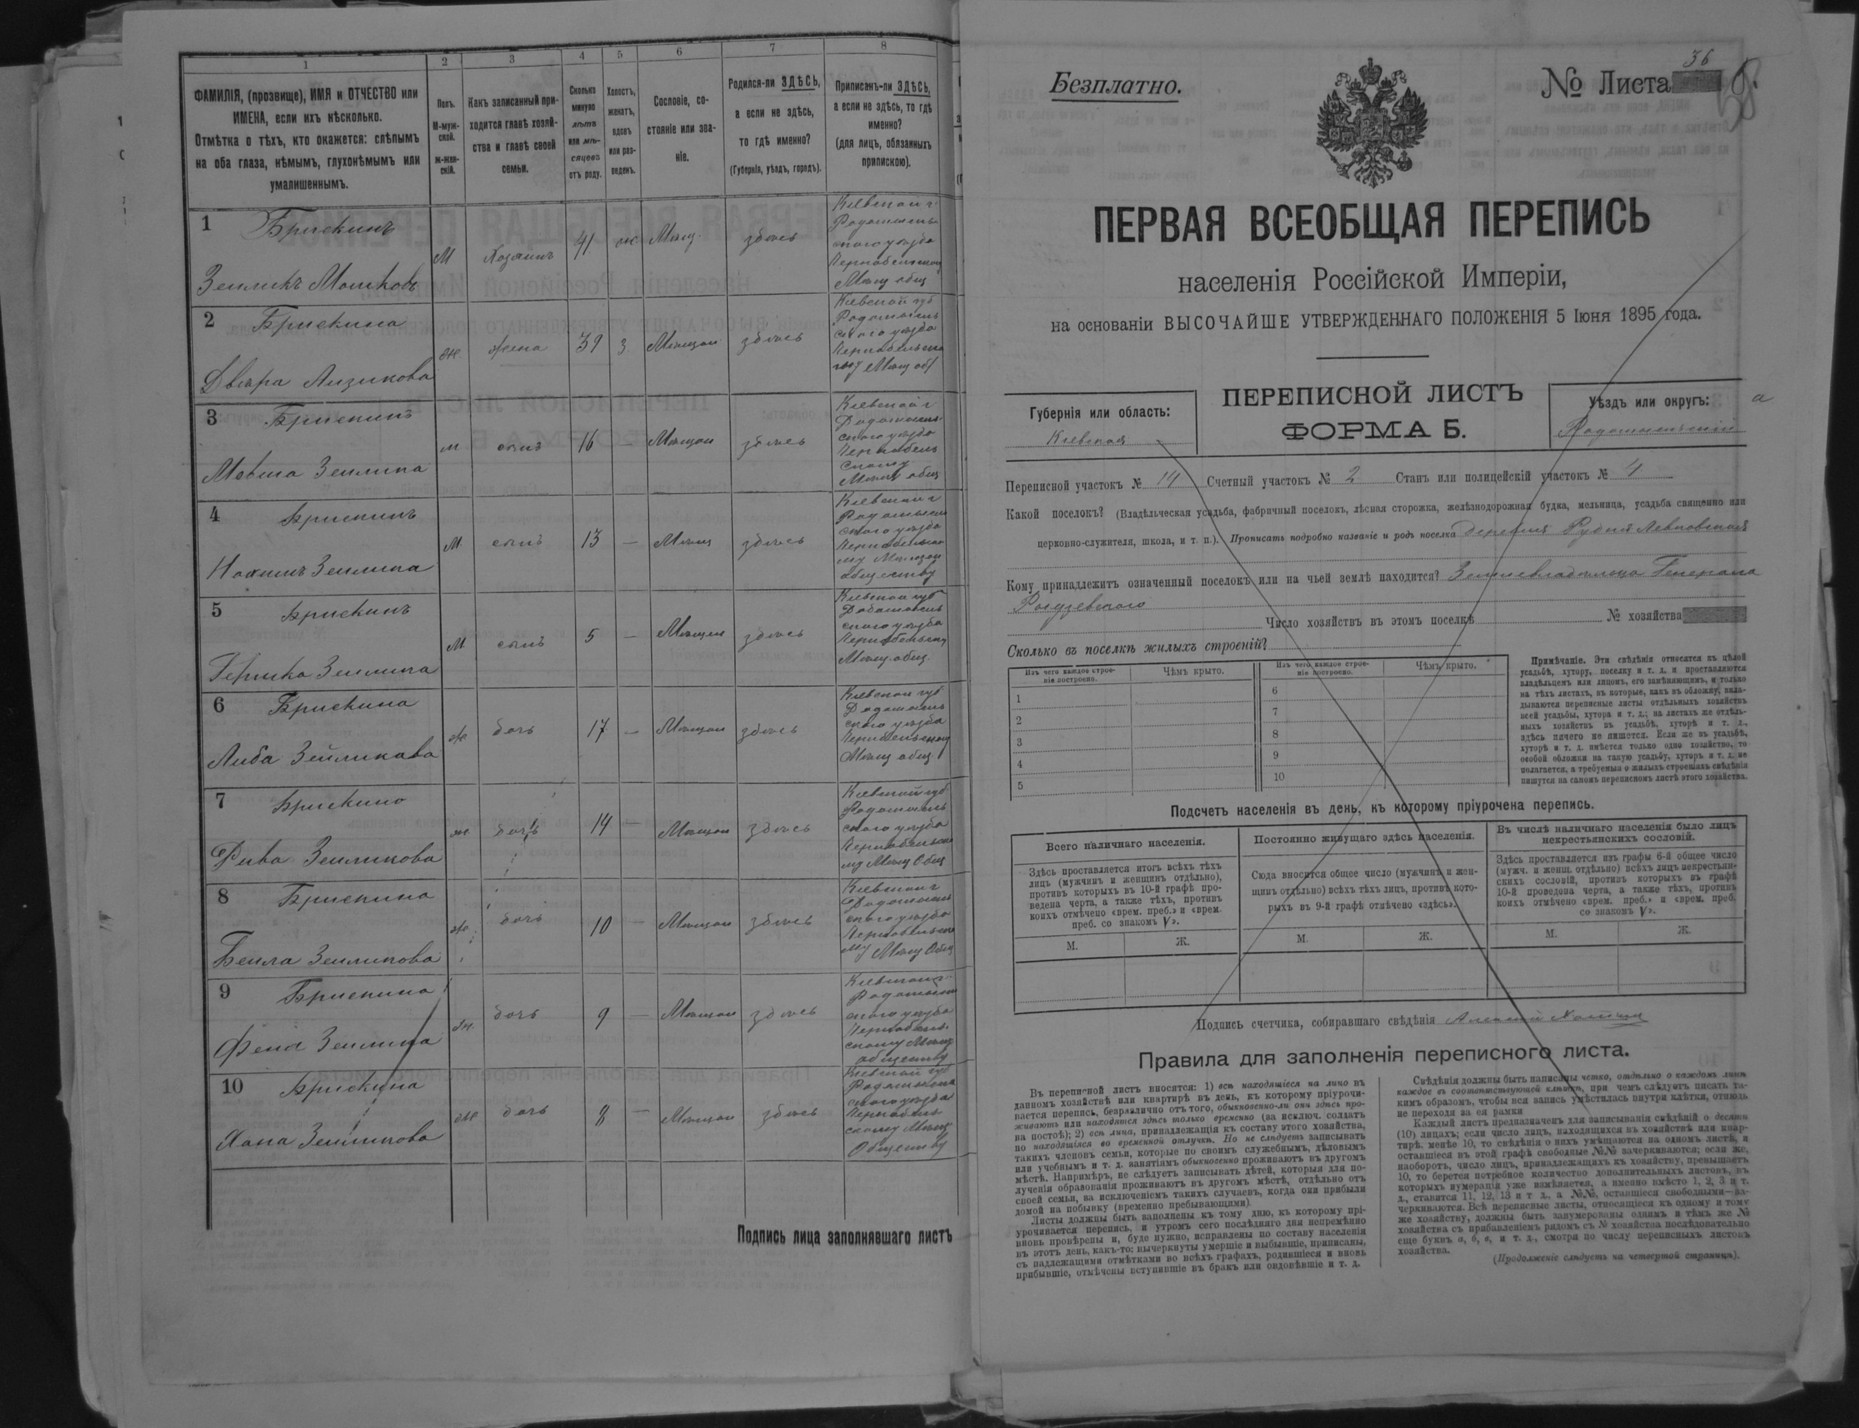 1 2 3 4 5 6 7 8
ФАМИЛІЯ, (прозвище), ИМЯ и ОТЧЕСТВО или
ИМЕНА, если ихъ нѣсколько.
Отмѣтка о тѣхъ, кто окажется: слѣпымъ
на оба глаза, нѣмымъ, глухонѣмымъ или
умалишеннымъ.
Полъ.
М-муж-
ской.
ж-жен-
скій.
Какъ записанный при-
ходится главѣ хозяй-
ства и главѣ своей
семьи.
Сколько
минуло
лѣтъ
или мѣ-
сяцевъ
отъ роду.
Холостъ,
женатъ,
вдовъ
или раз-
веденъ.
Сословіе, со-
стояніе или зва-
ніе.
Родился-ли ЗДѢСЬ,
а если не здѣсь,
то гдѣ именно?
(Губернія, уѣздъ, городъ).
Приписанъ-ли ЗДѢСЬ,
а если не здѣсь, то гдѣ
именно?
(для лицъ, обязанныхъ
припискою).
1 Брискинъ
Зеликъ Мошковъ
М Хозяинъ 41 Мѣщ. здѣсь
2 Брискина
Двера
ж жена 39 з Мѣщан здѣсь
3 Брискинъ
Мовша Зелика
м сынъ 16 Мѣщан здѣсь
4 Брискинъ
М сынъ 13 — Мѣщан здѣсь
5 Брискинъ
Гершко
М сынъ 5 — Мѣщан здѣсь
6 Брискина
Либа Зеликова
ж дочь 17 — Мѣщан здѣсь
7 Брискина
Рива Зеликова
ж дочь 14 — Мѣщан здѣсь
8 Брискина
Бейла Зеликова
ж дочь 10 — Мѣщан здѣсь
9 Брискина
ж дочь 9 — Мѣщан здѣсь
10 Брискина
Хана Зеликова
ж дочь 8 — Мѣщан здѣсь
Подпись лица заполнявшаго листъ
Безплатно.
№ Листа 36
ПЕРВАЯ ВСЕОБЩАЯ ПЕРЕПИСЬ
населенія Россійской Имперіи,
на основаніи ВЫСОЧАЙШЕ УТВЕРЖДЕННАГО ПОЛОЖЕНІЯ 5 Іюня 1895 года.
Губернія или область:
Кіевская
ПЕРЕПИСНОЙ ЛИСТЪ
ФОРМА Б.
Уѣздъ или округъ:
Радомысльскій
а
Переписной участокъ № 14 Счетный участокъ № 2 Станъ или полицейскій участокъ № 4
Какой поселокъ? (Владѣльческая усадьба, фабричный поселокъ, лѣсная сторожка, желѣзнодорожная будка, мельница, усадьба священно или
церковно-служителя, школа, и т. п.). Прописать подробно названіе и родъ поселка деревня Рудня
Кому принадлежитъ означенный поселокъ или на чьей землѣ находится? Землевладѣльца Генерала
Число хозяйствъ въ этомъ поселкѣ № хозяйства
Сколько въ поселкѣ жилыхъ строеній?
Изъ чего каждое строе-
ніе построено.
Чѣмъ крыто.
Изъ чего каждое строе-
ніе построено.
Чѣмъ крыто.
1 6
2 7
3 8
4 9
5 10
Примѣчаніе. Эти свѣдѣнія относятся къ цѣлой
усадьбѣ, хутору, поселку и т. д. и проставляются
владѣльцемъ или лицомъ, его замѣняющимъ, и только
на тѣхъ листахъ, въ которые, какъ въ обложку, вкла-
дываются переписные листы отдѣльныхъ хозяйствъ
всей усадьбы, хутора и т. д.; на листахъ же отдѣль-
ныхъ хозяйствъ въ усадьбѣ, хуторѣ и т. д.,
здѣсь ничего не пишется. Если же въ усадьбѣ,
хуторѣ и т. д. имѣется только одно хозяйство, то
особой обложки на такую усадьбу, хуторъ и т. д. не
полагается, а требуемыя о жилыхъ строеніяхъ свѣдѣнія
пишутся на самомъ переписномъ листѣ этого хозяйства.
Подсчетъ населенія въ день, къ которому пріурочена перепись.
Всего наличнаго населенія.
Здѣсь проставляется итогъ всѣхъ тѣхъ
лицъ (мужчинъ и женщинъ отдѣльно),
противъ которыхъ въ 10-й графѣ про-
ведена черта, а также тѣхъ, противъ
коихъ отмѣчено «врем. преб.» и «врем.
преб. со знакомъ V».
Постоянно живущаго здѣсь населенія.
Сюда вносится общее число (мужчинъ и жен-
щинъ отдѣльно) всѣхъ тѣхъ лицъ, противъ кото-
рыхъ въ 9-й графѣ отмѣчено «здѣсь».
Въ числѣ наличнаго населенія было лицъ
некрестьянскихъ сословій.
Здѣсь проставляется изъ графы 6-й общее число
(мужч. и женщ. отдѣльно) всѣхъ лицъ некрестьян-
скихъ сословій, противъ которыхъ въ графѣ
10-й проведена черта, а также тѣхъ, противъ
коихъ отмѣчено «врем. преб.» и «врем. преб.
со знакомъ V».
М. Ж. М. Ж. М. Ж.
Подпись счетчика, собиравшаго свѣдѣнія
Правила для заполненія переписного листа.
Въ переписной листъ вносятся: 1) всѣ находящіеся на лицо въ
данномъ хозяйствѣ или квартирѣ въ день, къ которому пріурочи-
вается перепись, безразлично отъ того, обыкновенно-ли они здѣсь про-
живаютъ или находятся здѣсь только временно (за исключ. солдатъ
на постоѣ); 2) всѣ лица, принадлежащія къ составу этого хозяйства,
но находящіяся во временной отлучкѣ. Но не слѣдуетъ записывать
такихъ членовъ семьи, которые по своимъ служебнымъ, дѣловымъ
или учебнымъ и т. д. занятіямъ обыкновенно проживаютъ въ другомъ
мѣстѣ. Напримѣръ, не слѣдуетъ записывать дѣтей, которыя для по-
лученія образованія проживаютъ въ другомъ мѣстѣ, отдѣльно отъ
своей семьи, за исключеніемъ такихъ случаевъ, когда они прибыли
домой на побывку (временно пребывающими)
Листы должны быть заполнены къ тому дню, къ которому прі-
урочивается перепись, и утромъ сего послѣдняго дня непремѣнно
вновь провѣрены и, буде нужно, исправлены по составу населенія
въ этотъ день, какъ-то: вычеркнуты умершіе и выбывшіе, приписаны,
съ надлежащими отмѣтками во всѣхъ графахъ, родившіеся и вновь
прибывшіе, отмѣчены вступившіе въ бракъ или овдовѣвшіе и т. д.
Свѣдѣнія должны быть написаны четко, отдѣльно о каждомъ лицѣ
каждое въ соотвѣтствующей клѣткѣ, при чемъ слѣдуетъ писать та-
кимъ образомъ, чтобы вся запись умѣстилась внутри клѣтки, отнюдь
не переходя за ея рамки
Каждый листъ предназначенъ для записыванія свѣдѣній о десяти
(10) лицахъ; если число лицъ, находящихся въ хозяйствѣ или квар-
тирѣ, менѣе 10, то свѣдѣнія о нихъ умѣщаются на одномъ листѣ, и
оставшіеся въ этой графѣ свободные №№ зачеркиваются; если же,
наоборотъ, число лицъ, принадлежащихъ къ хозяйству, превышаетъ
10, то берется потребное количество дополнительныхъ листовъ, въ
которыхъ нумерація уже измѣняется, а именно вмѣсто 1, 2, 3 и т.
д., ставится 11, 12, 13 и т д., а №№, оставшіеся свободными—за-
черкиваются. Всѣ переписные листы, относящіеся къ одному и тому
же хозяйству, должны быть занумерованы однимъ и тѣмъ же №
хозяйства съ прибавленіемъ рядомъ съ № хозяйства послѣдовательно
еще буквъ а, б, в, и т. д., смотря по числу переписныхъ листовъ
хозяйства.
(Продолженіе слѣдуетъ на четвертой страницѣ).